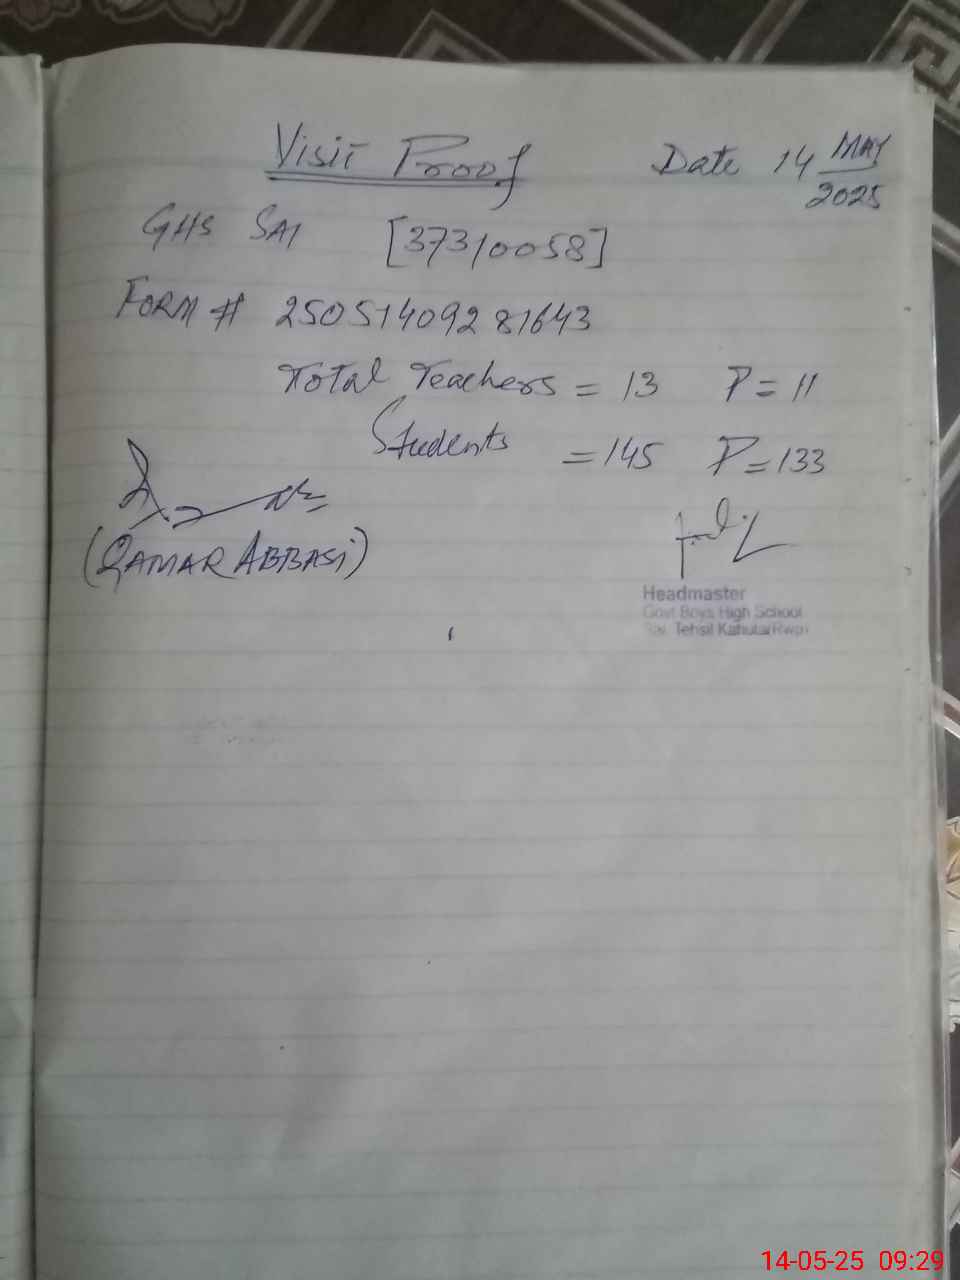 Visit Proof Date 14 MAY 2025
GHS SAI [37310058]
FORM # 25051409281643
Total Teachers = 13 P = 11
Students = 145 P = 133
(QAMAR ABBASI)
Headmaster
Govt Boys High School
Sai, Tehsil Kahuta/Rwp
14-05-25 09:29